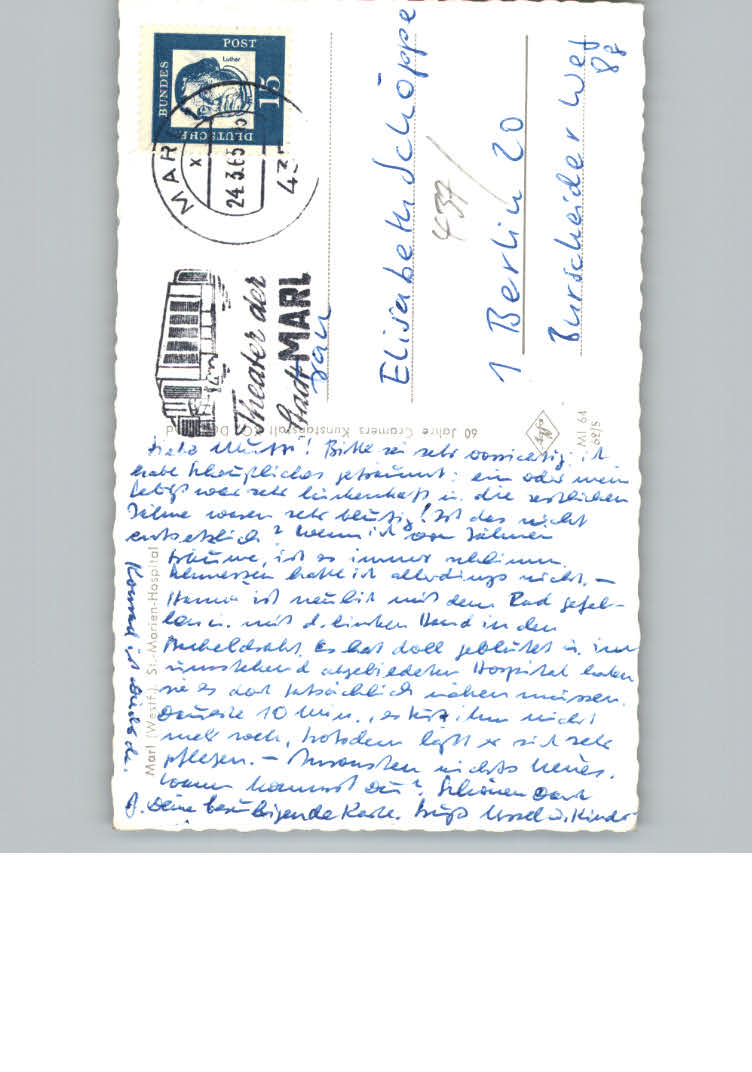 Liebe Mutti! Bitte sei sehr vorsichtig: ich
habe Scheußliches geträumt: ein oder mein
Gebiß war sehr lückenhaft u. die restlichen
Zähne waren sehr blutig! Ist das nicht
entsetzlich? Wenn ich von Zähnen
träume, ist es immer schlimm.
Schmerzen hatte ich allerdings nicht. –
ist neulich mit dem Rad gefal-
len u. mit d. linken Hand in den
Stacheldraht. Es hat doll geblutet u. im
umstehend abgebildeten Hospital haben
sie es dort tatsächlich nähen müssen.
Dauerte 10 Min., es tut ihm nicht
mehr weh, trotzdem läßt er sich sehr
pflegen. – Ansonsten nichts Neues.
Wann kommst Du? Schönen Dank
f. Deine beruhigende Karte. Gruß Ursel u. Kinder
Konrad ist
Marl (Westf.) St.-Marien-Hospital
60 Jahre Cramers Kunstanstalt KG, Do
Agfa
MI 64
62/5
DEUTSCHE BUNDESPOST
Luther
15
MAR
x
24.3.65
43
Theater der
Stadt MARL
Frau
Elisabeth Schöppe
437
1 Berlin 20
Burscheider Weg
8g